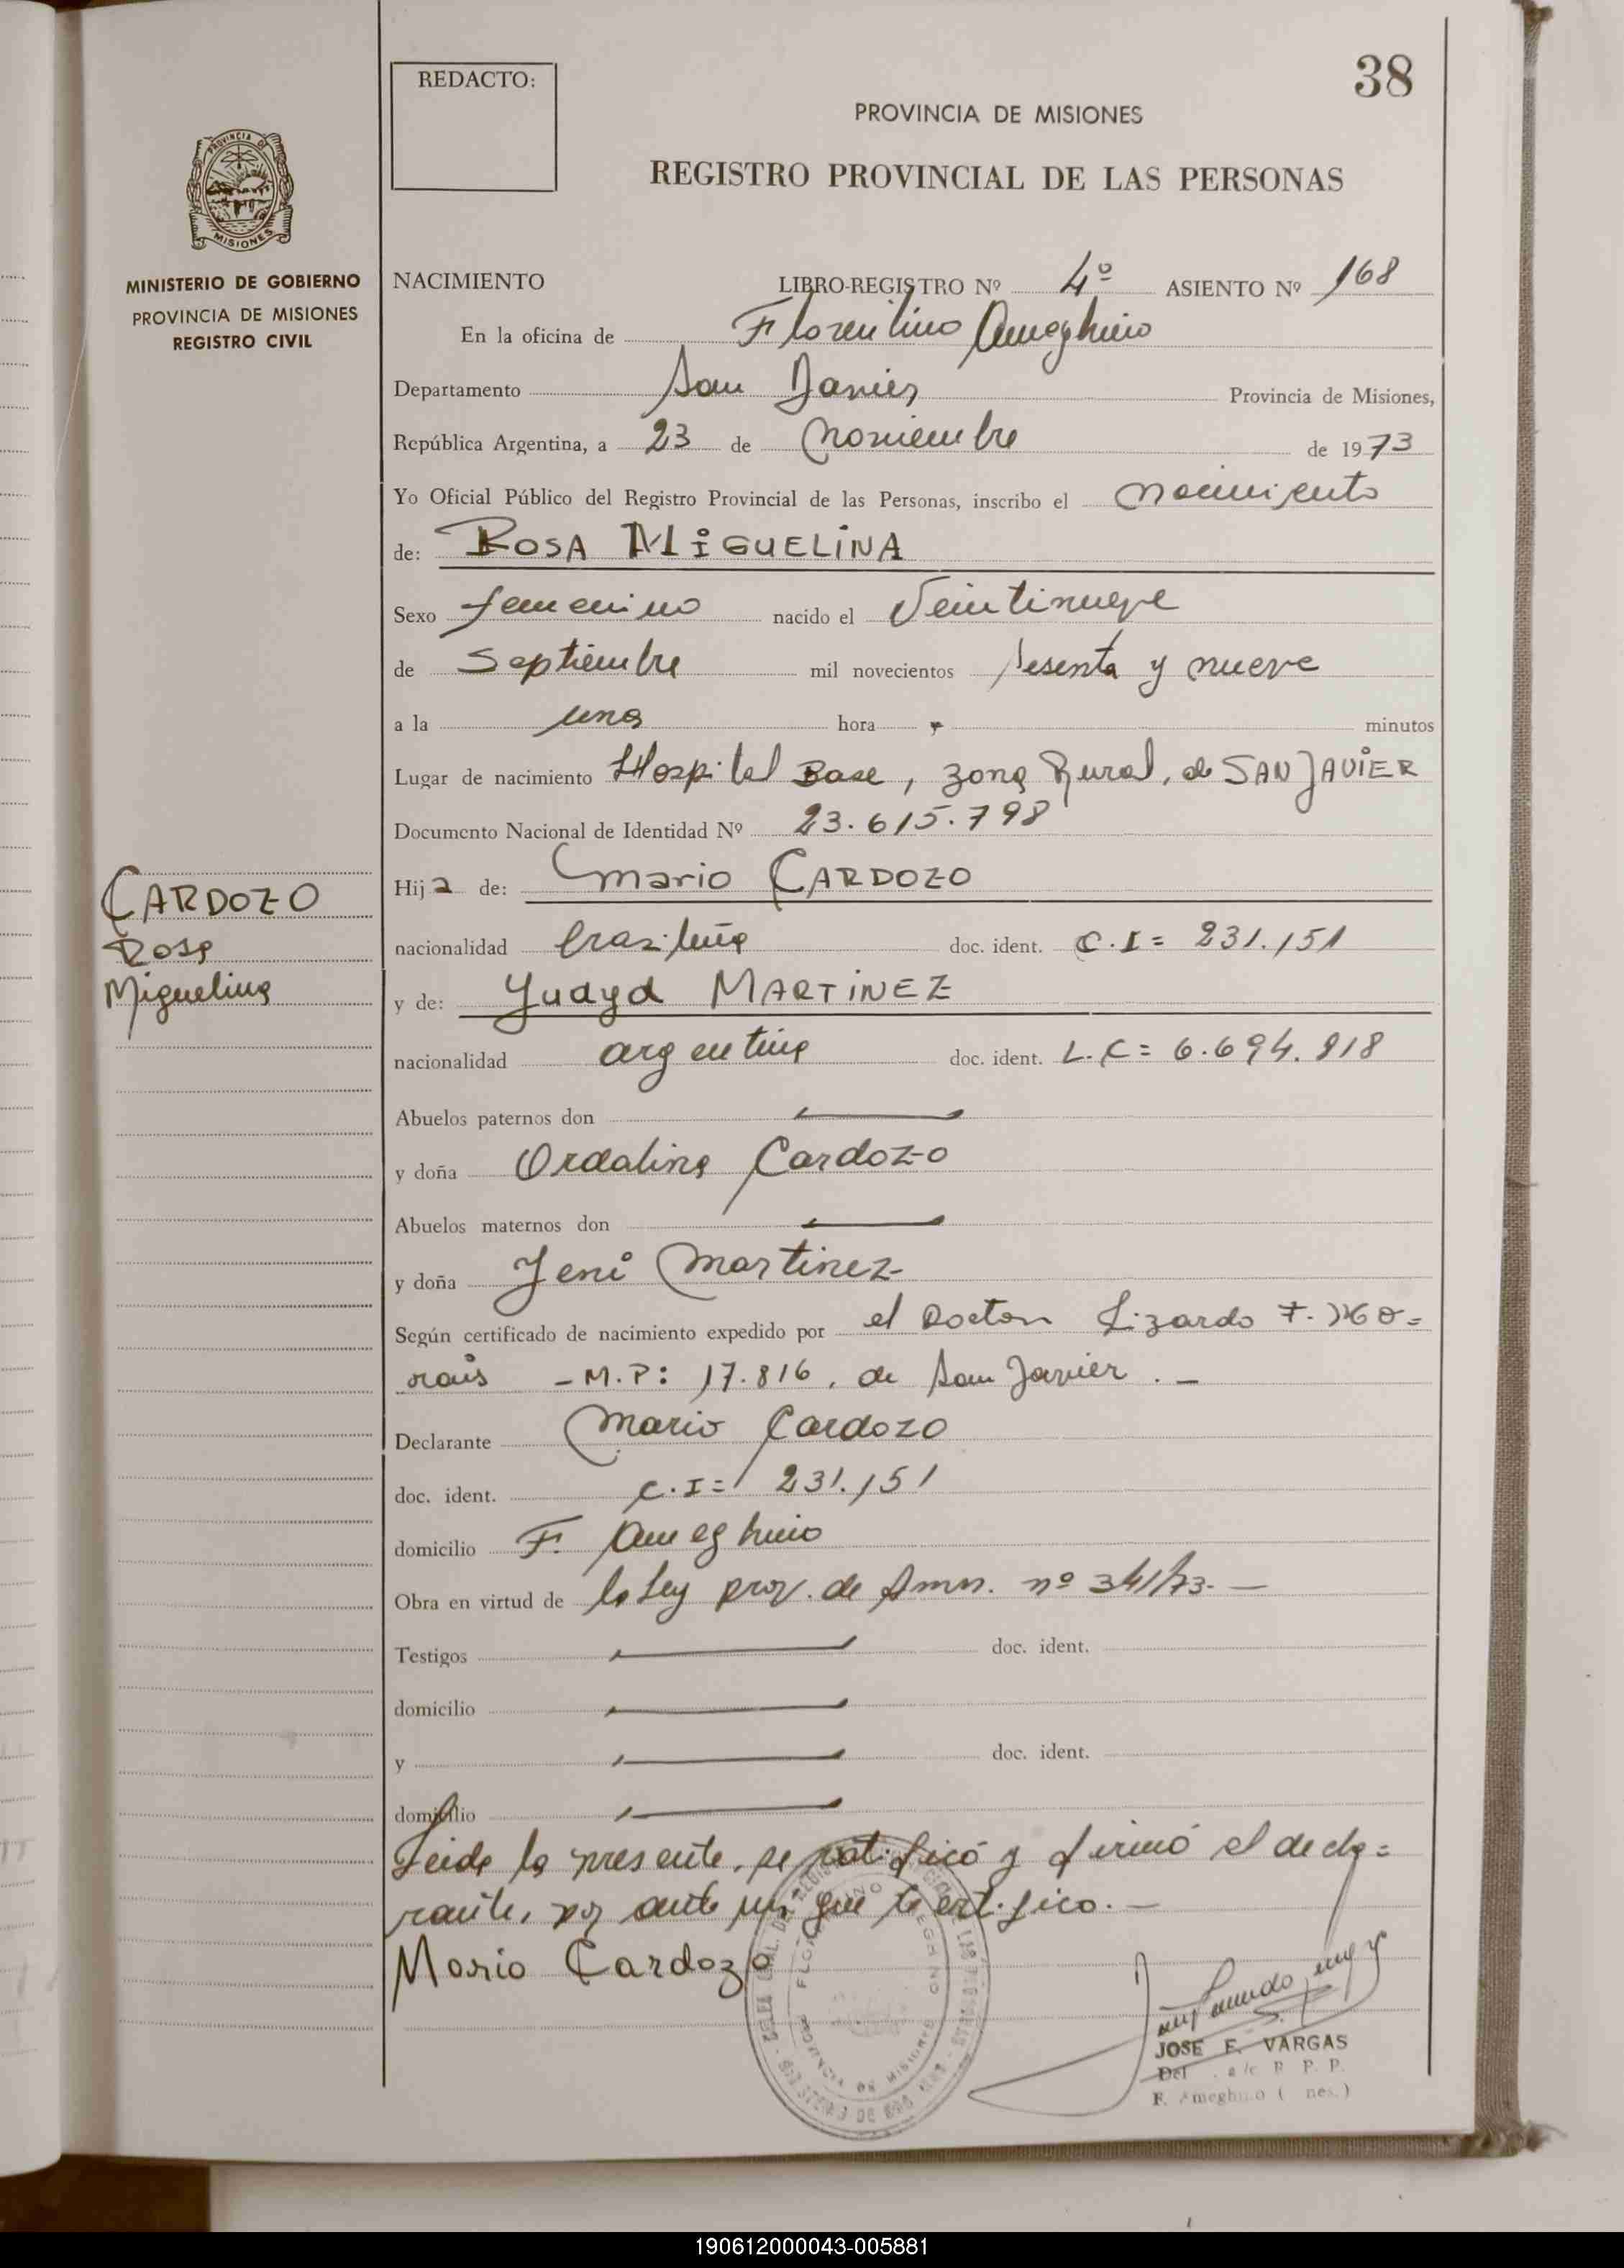 38
REDACTO:
PROVINCIA DE MISIONES
REGISTRO PROVINCIAL DE LAS PERSONAS
PROVINCIA DE
MISIONES
MINISTERIO DE GOBIERNO
PROVINCIA DE MISIONES
REGISTRO CIVIL
NACIMIENTO LIBRO-REGISTRO Nº 4º ASIENTO Nº 168
En la oficina de Florentino Ameghino
Departamento San Javier Provincia de Misiones,
República Argentina, a 23 de Noviembre de 1973
Yo Oficial Público del Registro Provincial de las Personas, inscribo el nacimiento
de: ROSA MIGUELINA
Sexo femenino nacido el Veintinueve
de Septiembre mil novecientos sesenta y nueve
a la una hora - minutos
Lugar de nacimiento Hospital Base, zona Rural, de SAN JAVIER
Documento Nacional de Identidad Nº 23.615.798
CARDOZO
Rosa
Miguelina
Hija de: Mario CARDOZO
nacionalidad brazileña doc. ident. C.I= 231.151
y de: Yudyd MARTINEZ
nacionalidad argentina doc. ident. L.C= 6.694.818
Abuelos paternos don
y doña Ordalina Cardozo
Abuelos maternos don
y doña Jeni Martinez
Según certificado de nacimiento expedido por el Doctor Lizardo F. Mo=
rais - M.P: 17.816, de San Javier. -
Declarante Mario Cardozo
doc. ident. C.I= 231.151
domicilio F. Ameghino
Obra en virtud de la Ley prov. de Amn. nº 341/73. -
Testigos doc. ident.
domicilio
y doc. ident.
domicilio
Leida la presente, se ratificó y firmó el decla=
rante, por ante mi que certifico. -
Mario Cardozo
JOSE E. VARGAS
Del a/c R. P. P.
F. Ameghino ( nes.)
190612000043-005881